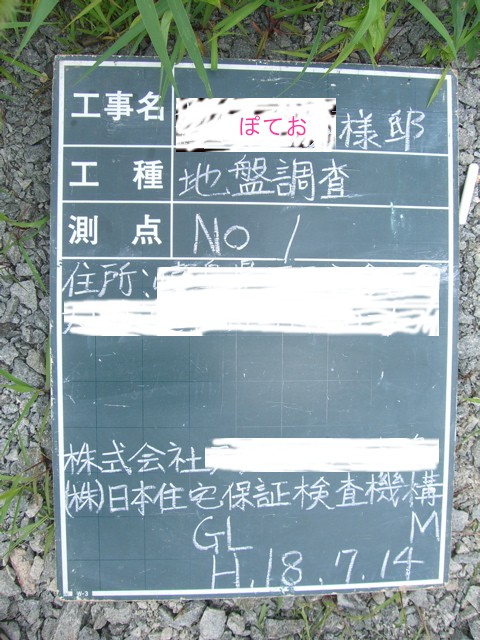 工事名 ぽてお 様邸
工種 地盤調査
測点 No 1
住所:
株式会社
(株)日本住宅保証検査機構
GL M
H.18.7.14